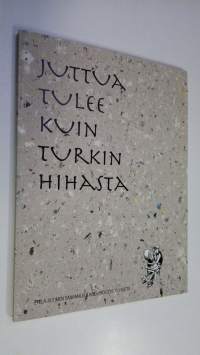 JUTTUA
TULEE
KUIN
TURKIN
HIHASTA